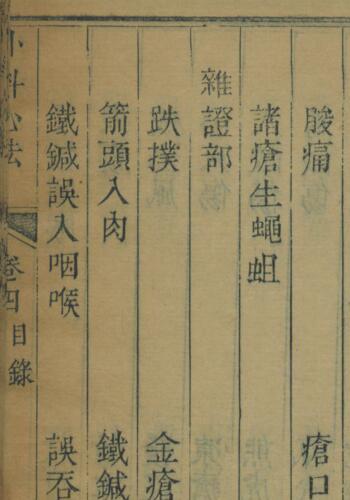 脧痛 瘡口
諸瘡生蠅蛆
雜證部
跌撲 金瘡
箭頭入肉 鐵鍼
鐵鍼誤入咽喉 誤吞
卷四目錄